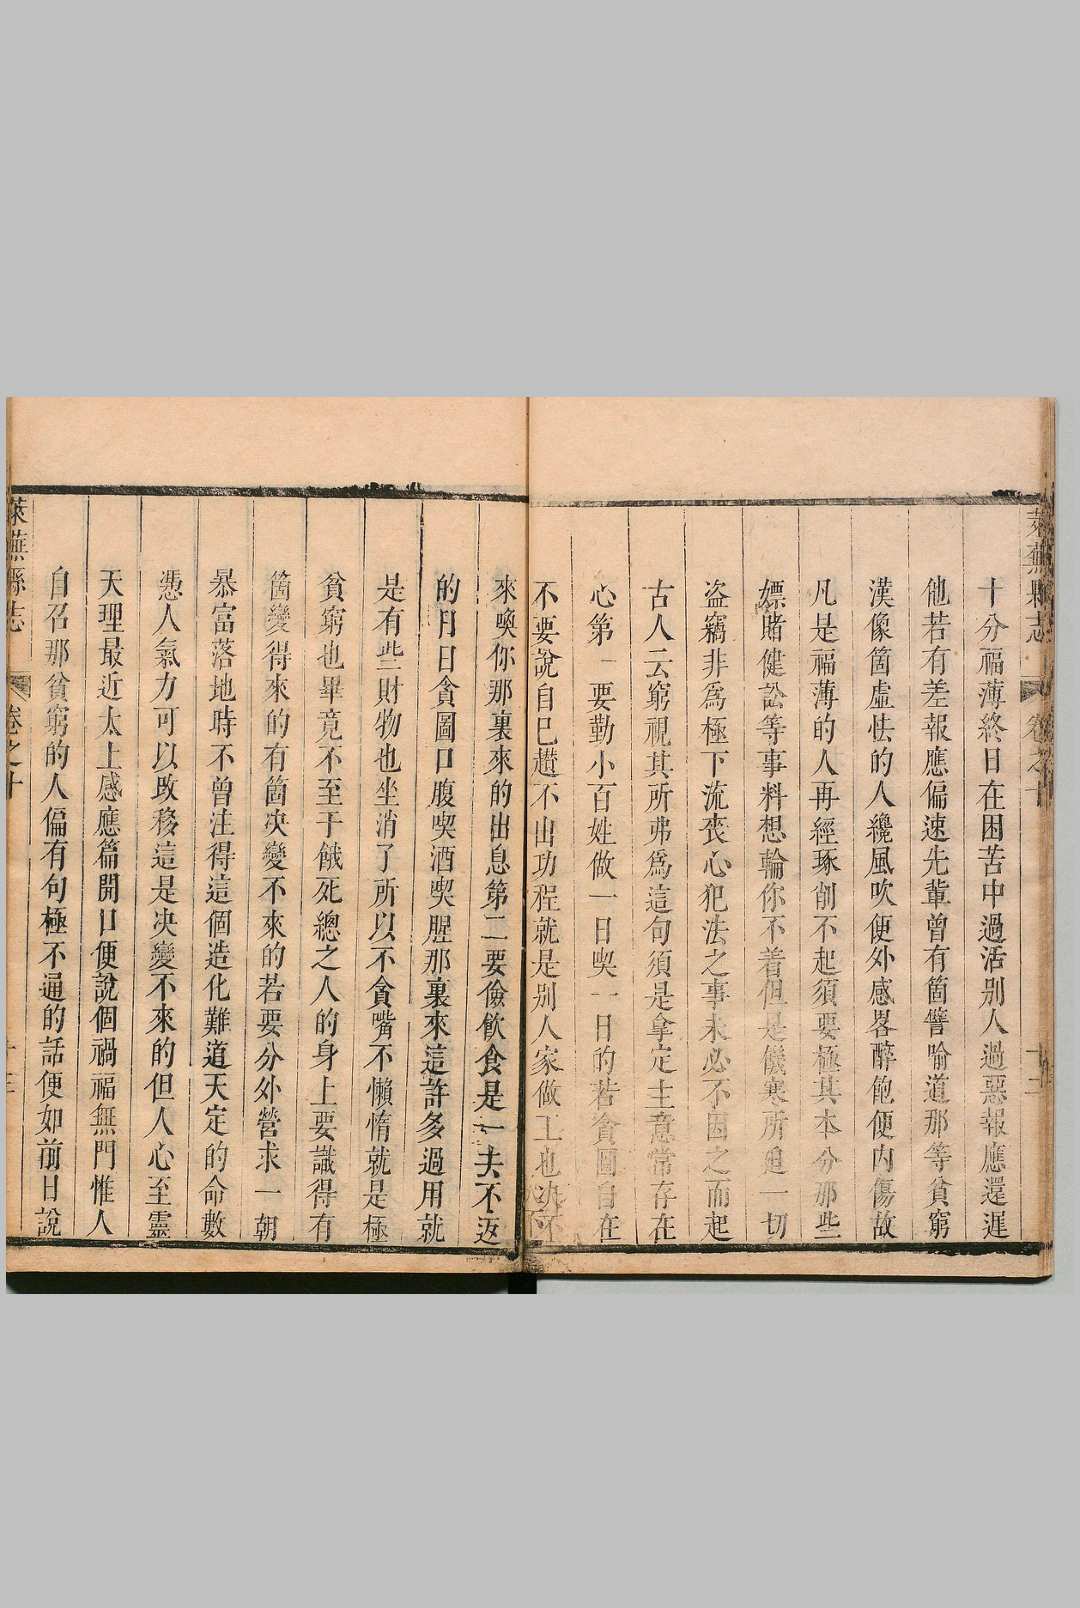 萊蕪縣志
卷之十
十二
十分福薄終日在困苦中過活别人過惡報應還遲
他若有差報應偏速先輩曾有箇譬喻道那等貧窮
漢像箇虛怯的人纔風吹便外感畧醉飽便内傷故
凡是福薄的人再經琢削不起須要極其本分那些
嫖賭健訟等事料想輪你不着但是饑寒所迫一切
盗竊非爲極下流喪心犯法之事未必不因之而起
古人云窮視其所弗爲這句須是拿定主意常存在
心第一要勤小百姓做一日喫一日的若貪圖自在
不要說自巳趲不出功程就是别人家做工也決不
來喚你那裏來的出息第二要儉飲食是一去不返
的日日貪圖口腹喫酒喫腥那裏來這許多過用就
是有些財物也坐消了所以不貪嘴不懶惰就是極
貧窮也畢竟不至于餓死總之人的身上要識得有
箇變得來的有箇决變不來的若要分外營求一朝
暴富落地時不曾注得這個造化難道天定的命數
憑人氣力可以改移這是决變不來的但人心至靈
天理最近太上感應篇開口便說個禍福無門惟人
自召那貧窮的人偏有句極不通的話便如前日說
萊蕪縣志
卷之十
十三